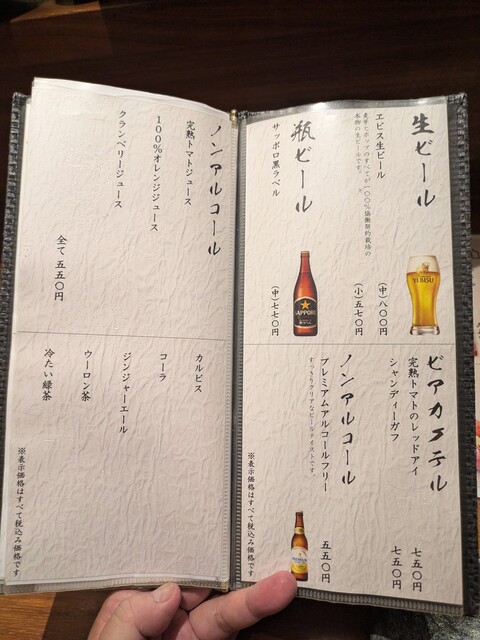 生ビール
エビス生ビール
麦芽とホップのすべてが一〇〇%協働契約栽培の
本物の生ビールです。
(中)八〇〇円
(小)五七〇円
YEBISU
瓶ビール
サッポロ黒ラベル
(中)七七〇円
SAPPORO
ビアカクテル
完熟トマトのレッドアイ
七五〇円
シャンディーガフ
七五〇円
ノンアルコール
プレミアムアルコールフリー
すっきりクリアなビールテイストです。
五五〇円
※表示価格はすべて税込み価格です
ノンアルコール
完熟トマトジュース
100%オレンジジュース
クランベリージュース
全て 五五〇円
カルピス
コーラ
ジンジャーエール
ウーロン茶
冷たい緑茶
※表示価格はすべて税込み価格です